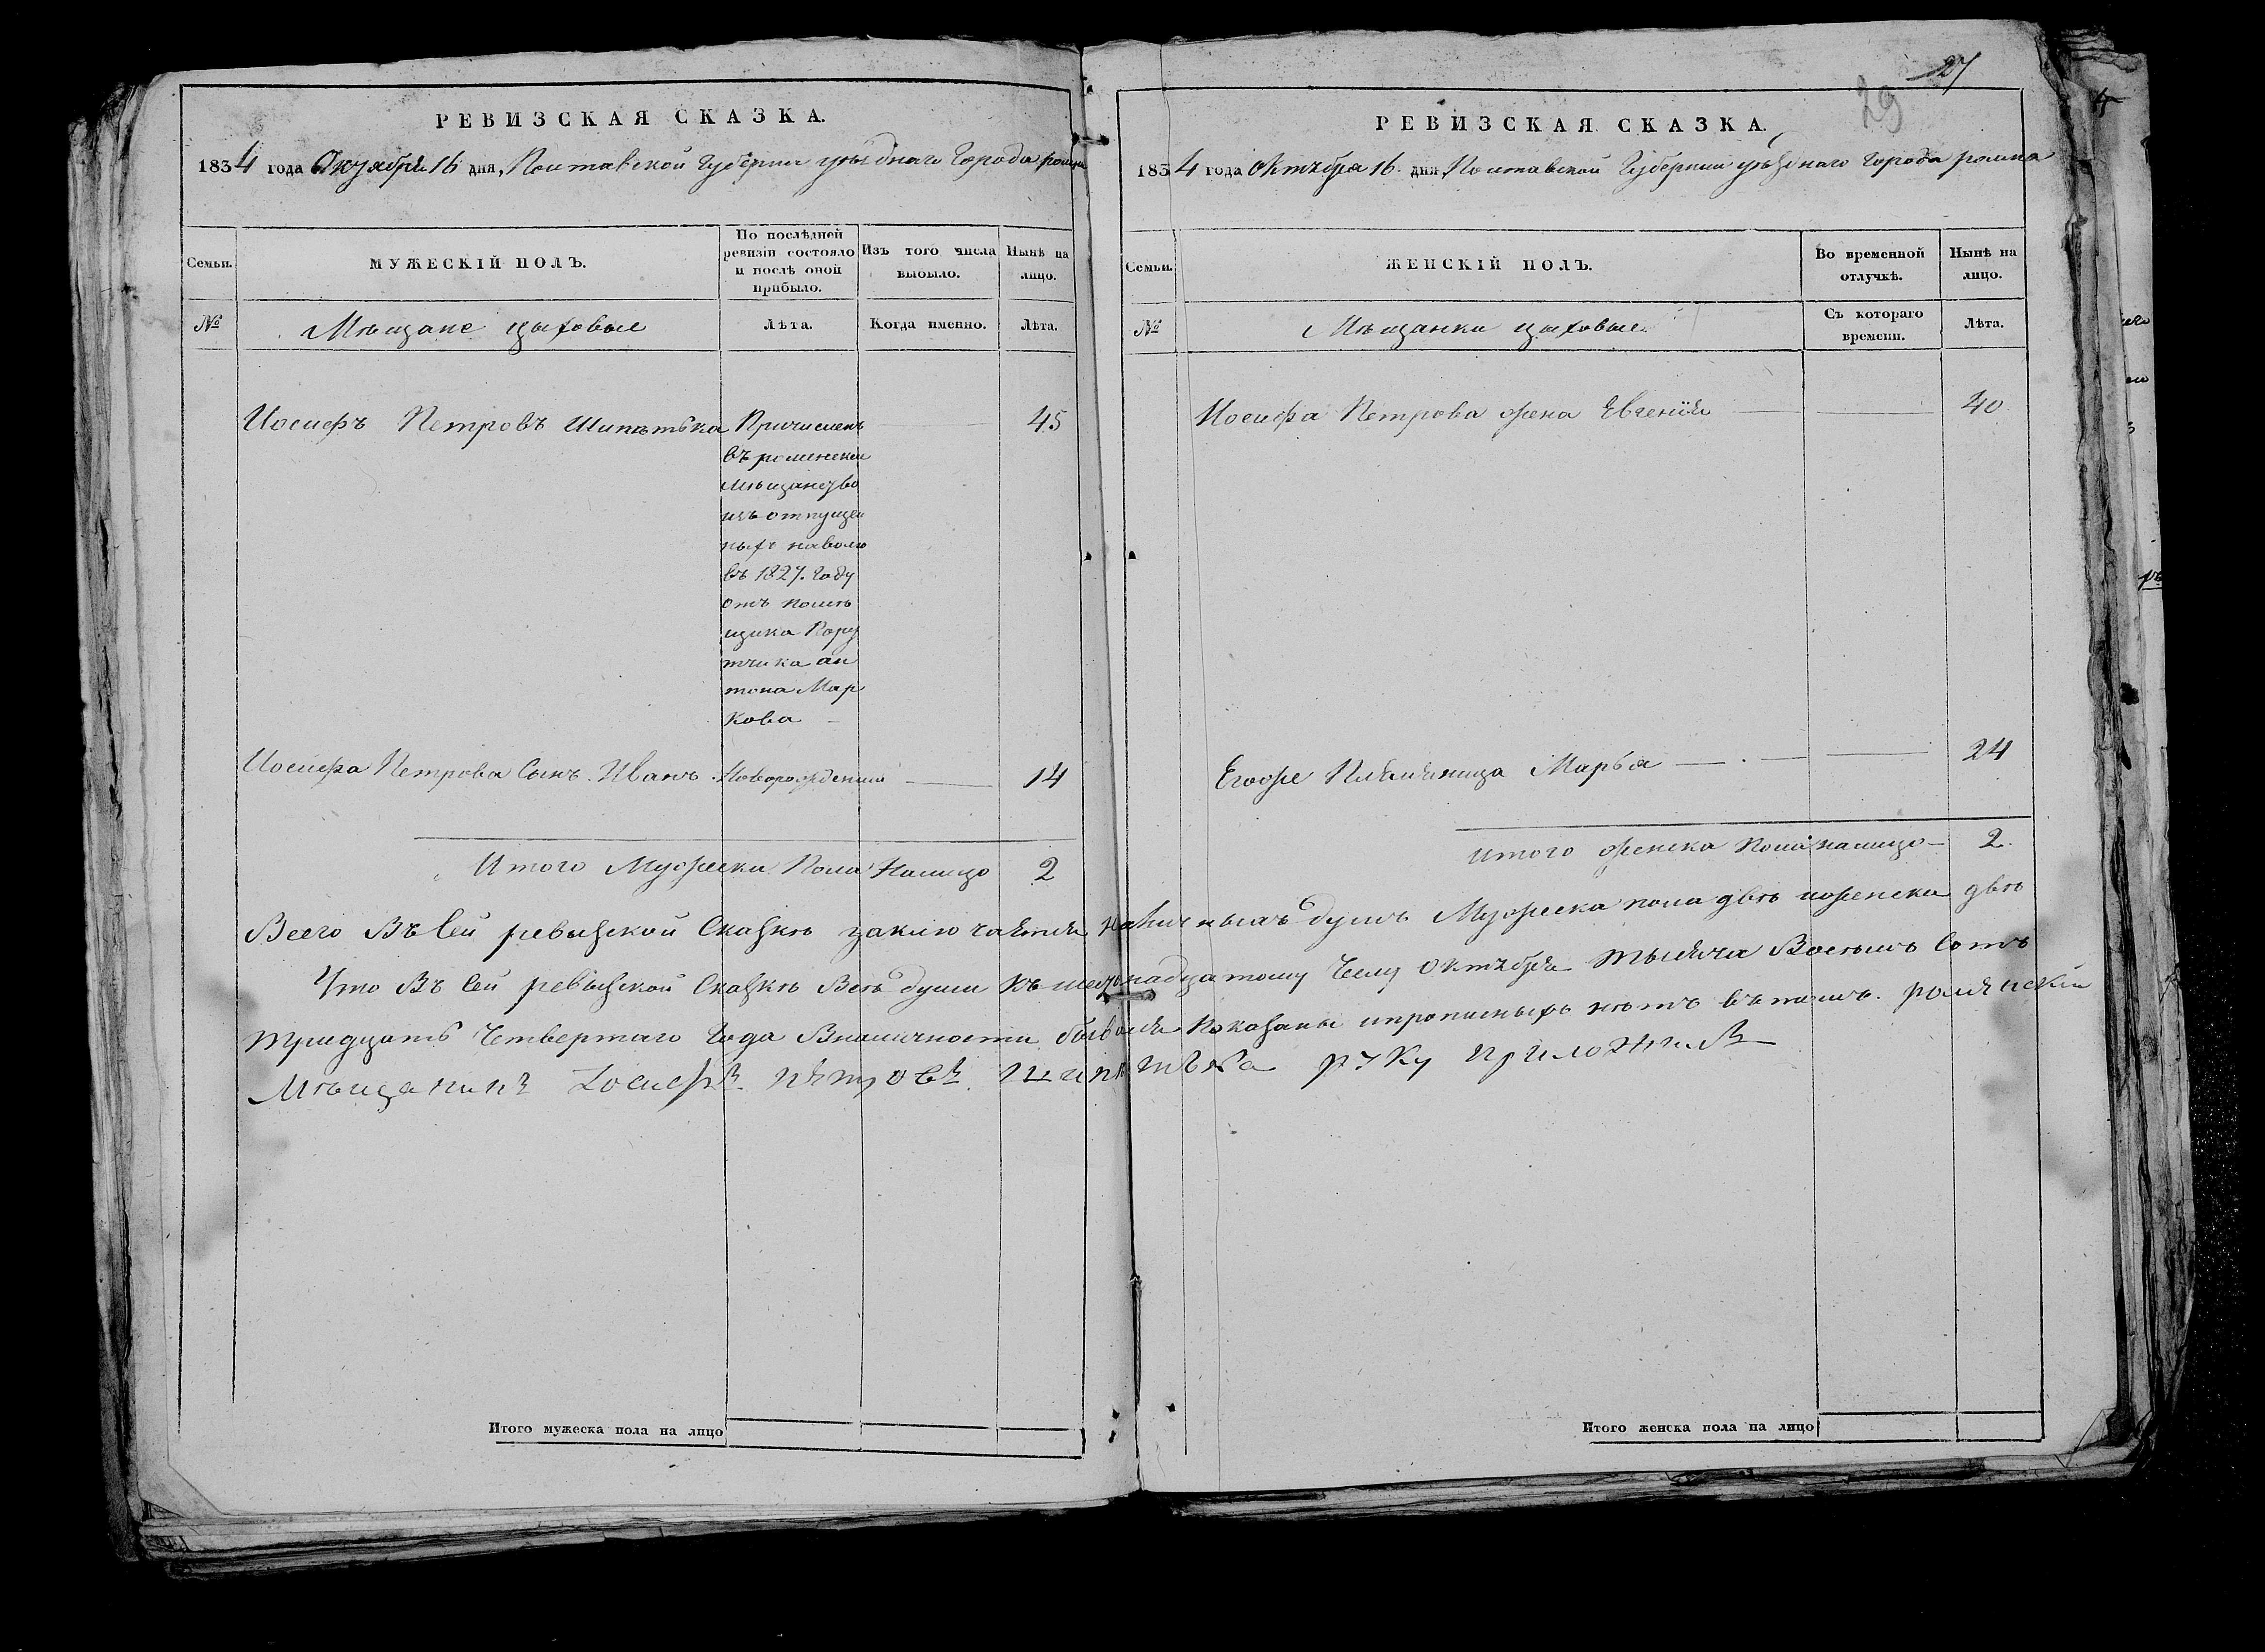 РЕВИЗСКАЯ СКАЗКА.
1834 года Октября 16 дня, Полтавской Губерни уѣзднаго Города ромна
Семьи.
МУЖЕСКІЙ ПОЛЪ.
По послѣдней
ревизіи состояло
и послѣ оной
прибыло.
Изъ того числа
выбыло.
Нынѣ на
лицо.
№
Мѣщане цыховые
Лѣта.
Когда именно.
Лѣта.
Иосифъ Петровъ Шипѣтька
Причисленъ
въ роменские
мѣщанство
изъ отпущен
ныхъ наволю
въ 1827. году
отъ помѣ
щика Пору
тчика ан
тона Мар
кова
45
Иосифа Петрова Сынъ Иванъ. Новорожденний 14
Итого Мужеска Пола Налицо 2
27
29
РЕВИЗСКАЯ СКАЗКА.
1834 года Октября 16. дня Полтавской Губернии уѣзднаго города ромна
Семьи.
ЖЕНСКІЙ ПОЛЪ.
Во временной
отлучкѣ.
Нынѣ на
лицо.
№
Мѣщанки цыховые.
Съ котораго
времени.
Лѣта.
Иосифа Петрова жена Евгения 40
Егоже Племяница Марья 24
итого женска пола налицо 2.
Всего Въ Сей ревызской Сказкѣ заключается наличныхъ душъ Мужеска пола двѣ иженска двѣ
Что Въ Сей ревызской Сказкѣ Всѣ души къ шеснадцатому Числу Октября тысяча Восемь Сотъ
тридцать Четвертаго Года Вналичности бывшія Показаны ипрописныхъ нѣтъ въ томъ. роменский
Мѣщанинъ Іосифъ. Петровъ. Шипѣтька руку приложилъ
Итого мужеска пола на лицо
Итого женска пола на лицо